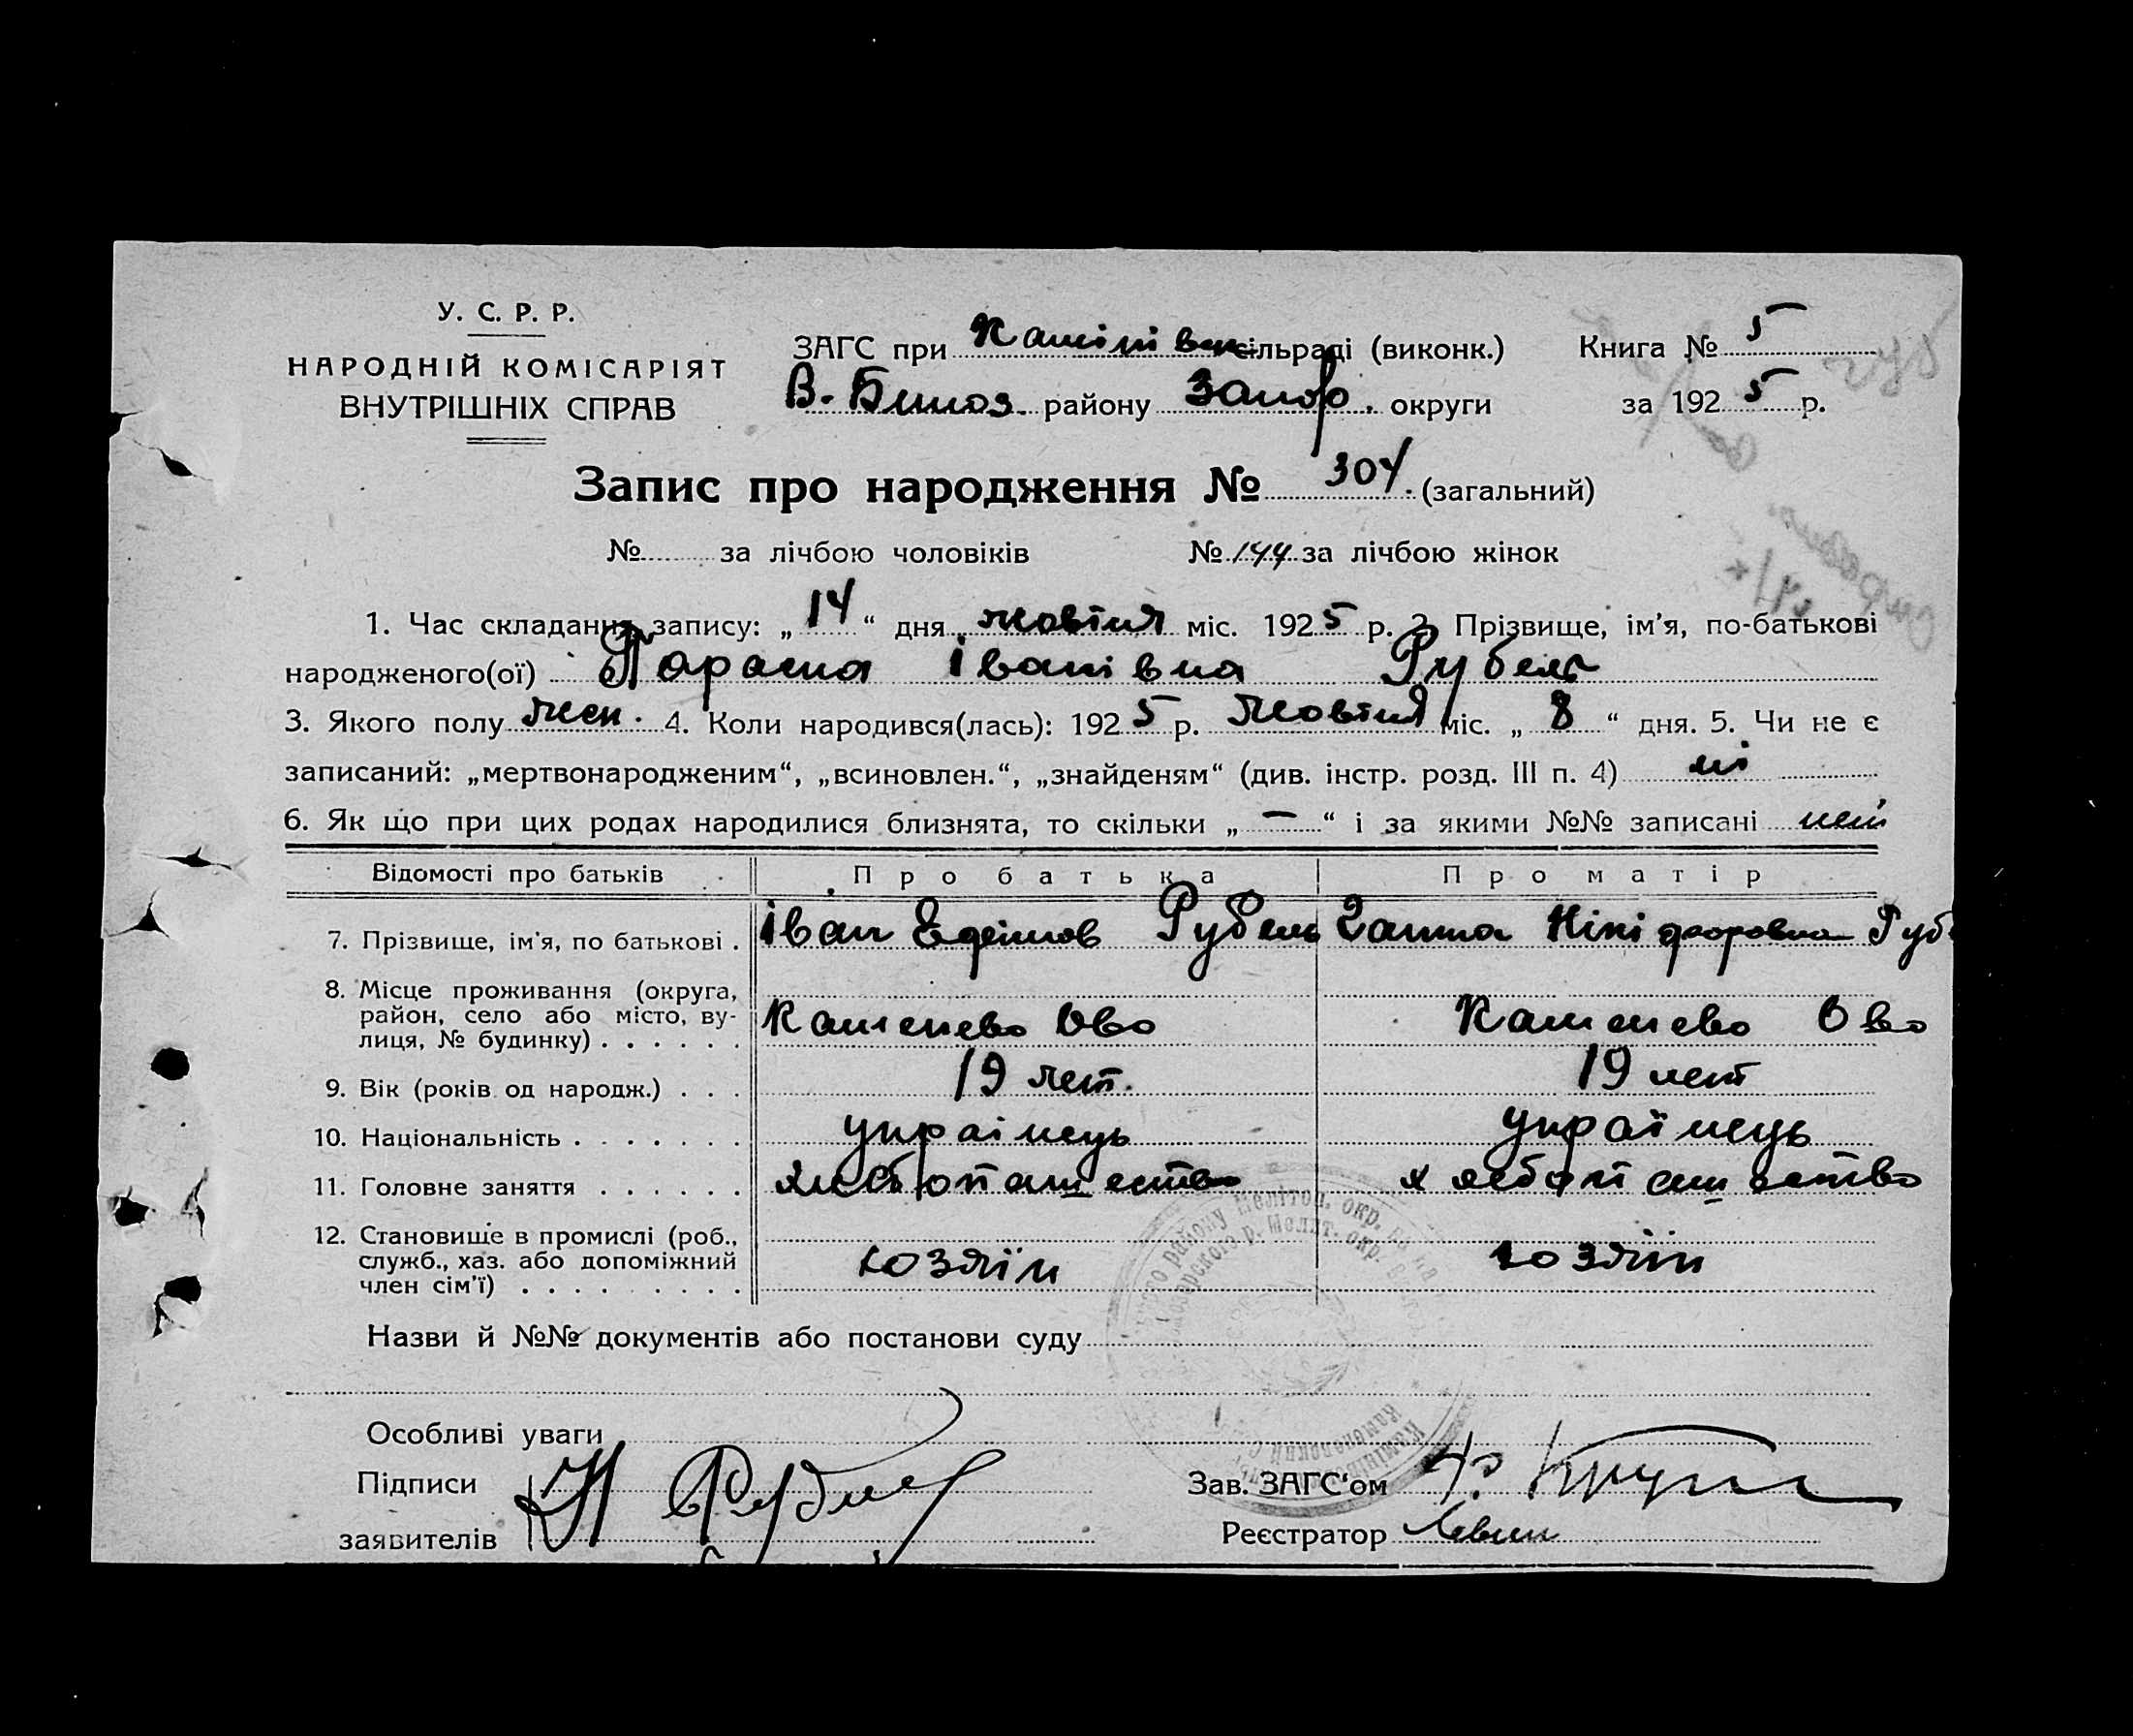 У. С. Р. Р.
НАРОДНІЙ КОМІСАРІЯТ
ВНУТРІШНІХ СПРАВ
ЗАГС при сільраді (виконк.)
району Запор. округи
Книга № 5
за 1925 р.
Запис про народження № 304. (загальний)
№ за лічбою чоловіків № 144 за лічбою жінок
1. Час складання запису: „14“ дня жовтня міс. 1925 р. 2. Прізвище, ім'я, по-батькові
народженого(ої) Параска Іванівна Рубель
3. Якого полу жен. 4. Коли народився(лась): 1925 р. Жовтня міс. „8“ дня. 5. Чи не є
записаний: „мертвонародженим“, „всиновлен.“, „знайденям“ (див. інстр. розд. III п. 4) ні
6. Як що при цих родах народилися близнята, то скільки „—“ і за якими №№ записані нет
Відомості про батьків Про батька Про матір
7. Прізвище, ім'я, по батькові . Іван Рубель Ганна Нікіфоровна Руб
8. Місце проживання (округа,
район, село або місто, ву-
лиця, № будинку) . . . . . .
9. Вік (років од народж.) . . . 19 лет. 19 лет
10. Національність . . . . . . . українець українець
11. Головне заняття . . . . . . хлебопашество хлебопашество
12. Становище в промислі (роб.,
служб., хаз. або допоміжний
член сім'ї) . . . . . . . . . хозяїн хозяїн
Назви й №№ документів або постанови суду
Особливі уваги
Підписи
заявителів
Зав. ЗАГС'ом
Реєстратор